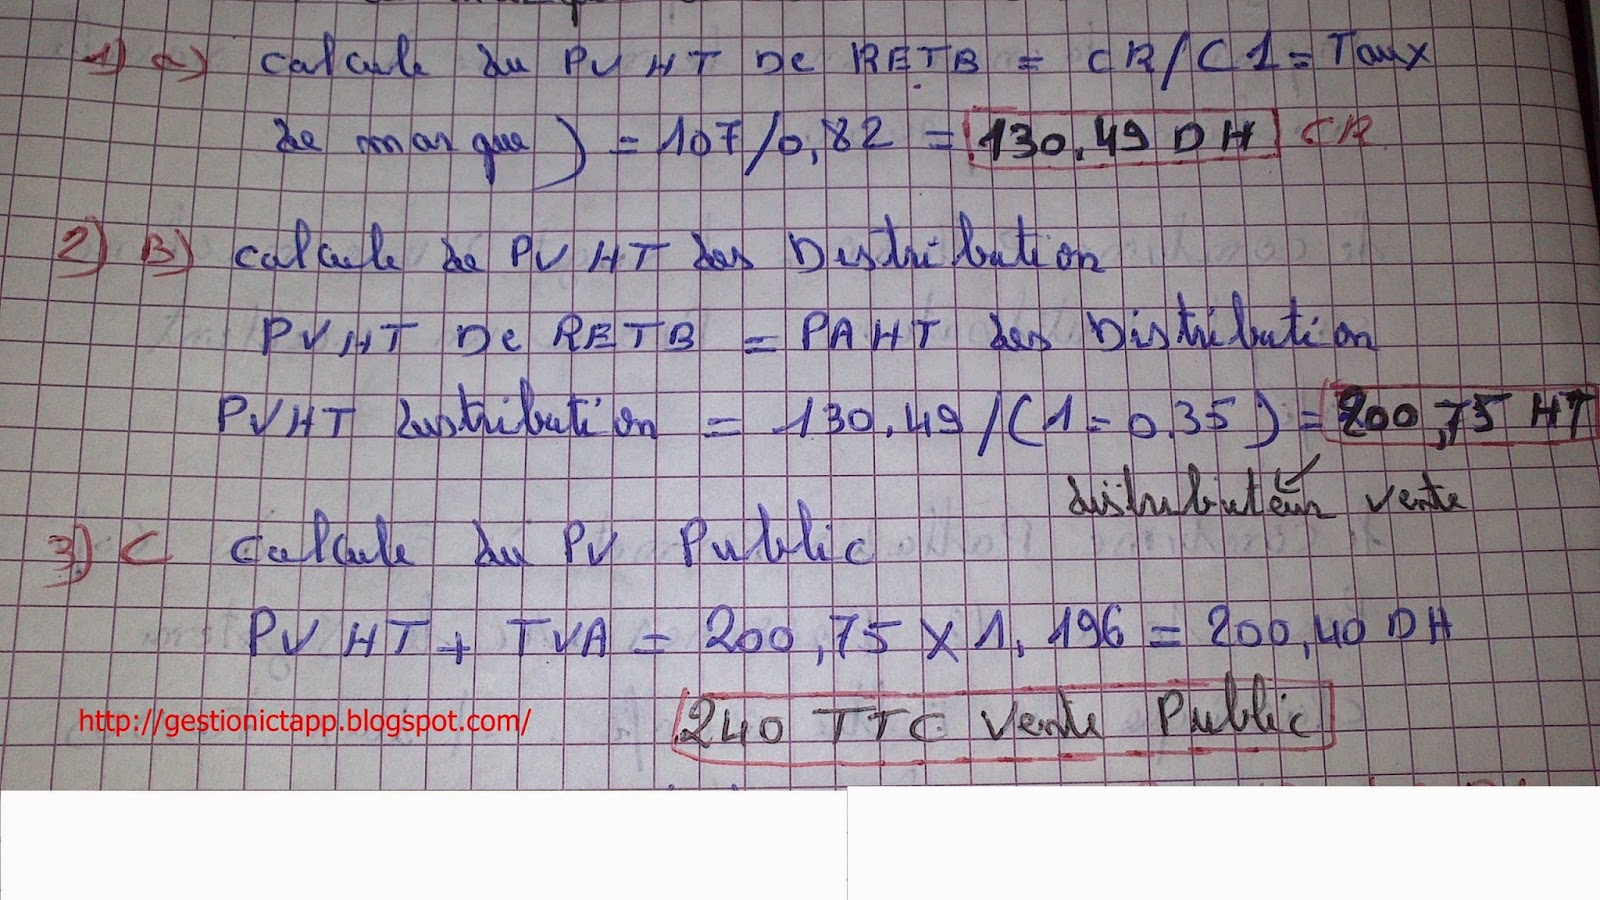 1) a) calcule du PV HT De RETB = CR/(1=Taux
de marque) = 107/0,82 = 130.49 DH CR
2) B) calcule de PV HT des Distribution
PVHT De RETB = PAHT des Distribution
PVHT distribution = 130.49/(1=0.35) = 200,75 HT
distributeur vente
3) C calcule du PV Public
PV HT + TVA = 200,75 X 1,196 = 200,40 DH
http://gestionictapp.blogspot.com/
240 TTC Vente Public